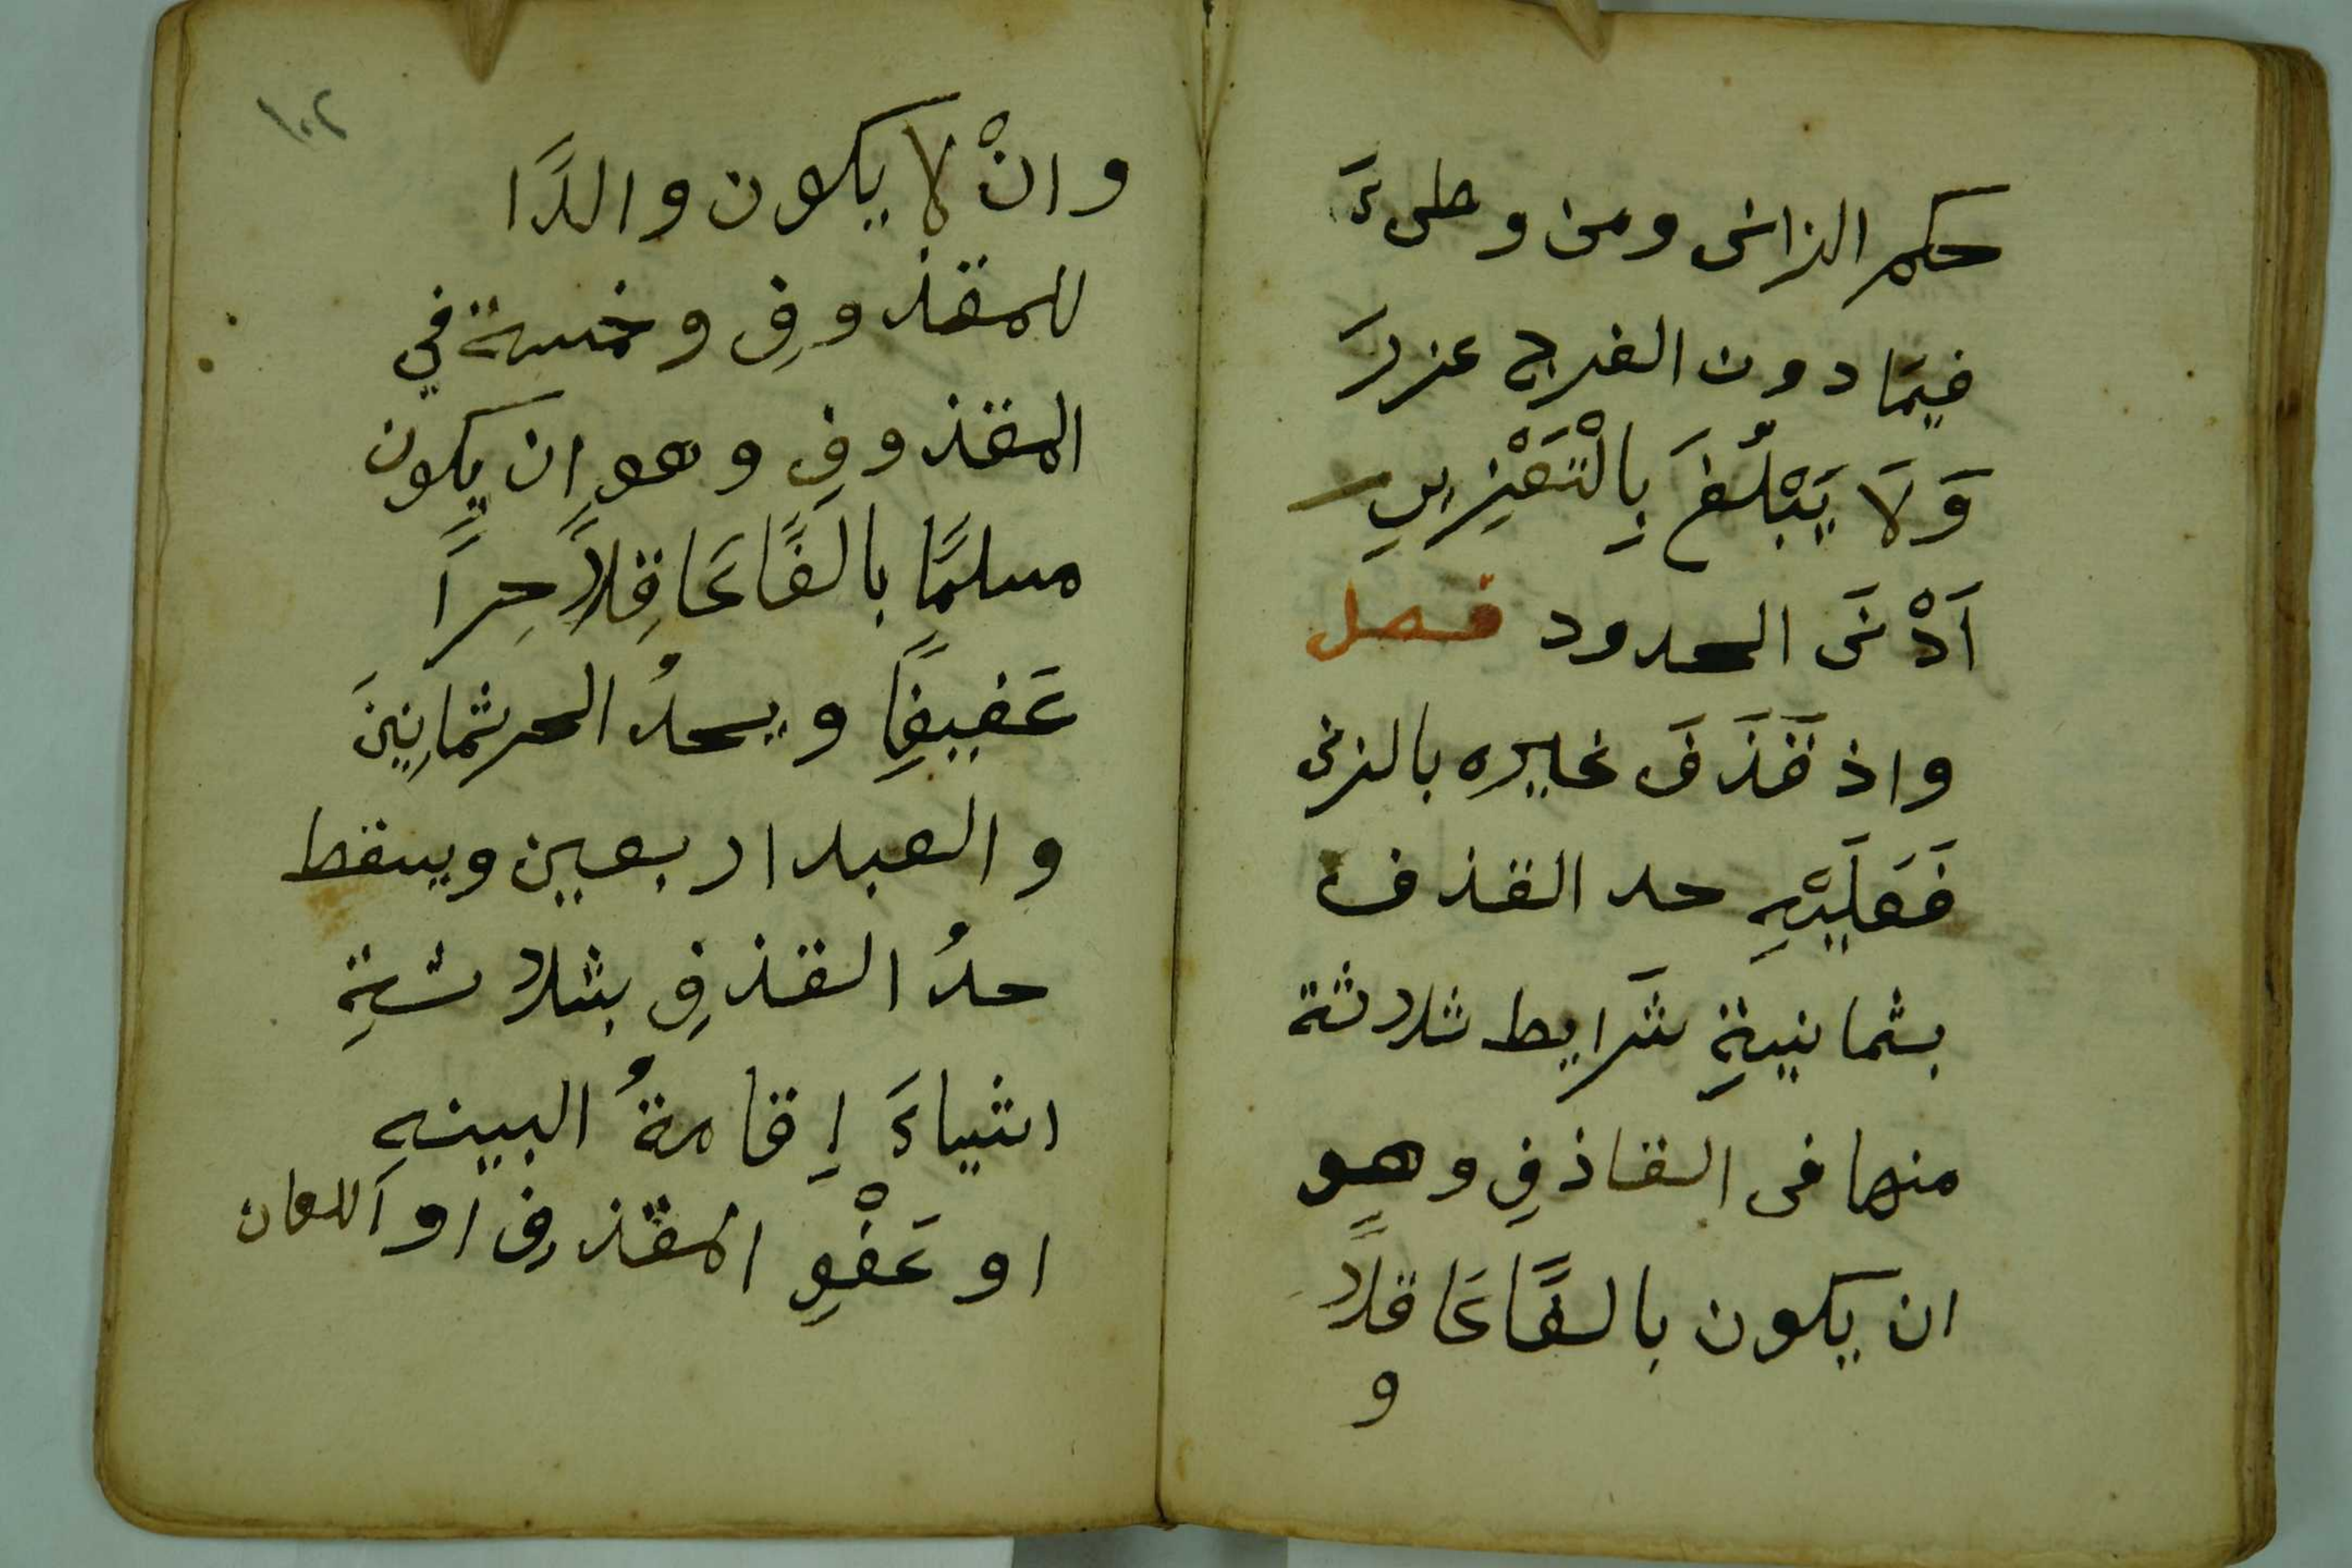 حكم الزانى ومن وطىءَ
فيمَا دون الفرج عزرَ
وَلَا يَبْلُغَ بِالْتَعْزِيرِ
اَدْنَى الحدود فصل
واذ قَذَفَ غيره بالزنى
فَعَلَيْهِ حد القذف
بثمانيةِ شَرايط ثلاثة
منها فى القاذفِ وهو
ان يكون بالغًا عَاقلاً
و
١٠٢
وانْ لا يكون والدًا
للمقذوفِ وخمسة في
المقذوفِ وهو ان يكون
مسلمًا بالغًا عَاقِلاً حِراً
عَفيفِاً ويحدُ الحر ثمانِينَ
والعبد اربعين ويسقط
حدُ القذفِ بثلاثةِ
اشياءَ إِقامةُ البينهِ
او عَفْوِ المقذوفِ او اللعان